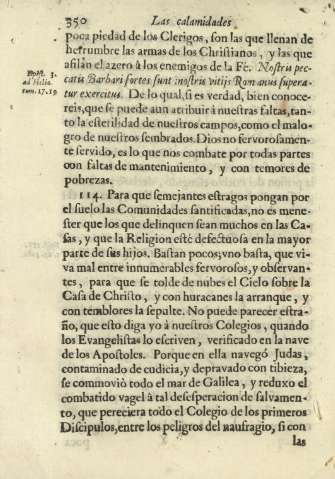 350 Las calamidades
poca piedad de los Clerigos, son las que llenan de
herrumbre las armas de los Christianos, y las que
afilan el azero à los enemigos de la Fè. Nostris pec-
catis Barbari fortes sunt: nostris vitijs Romanus supera-
tur exercitus. De lo qual, si es verdad, bien conoce-
reis, que se puede aun atribuir à nuestras faltas, tan-
to la esterilidad de nuestros campos, como el malo-
gro de nuestros sembrados. Dios no fervorosamen-
te servido, es lo que nos combate por todas partes
con faltas de mantenimiento, y con temores de
pobrezas.
114. Para que semejantes estragos pongan por
el suelo las Comunidades santificadas, no es mene-
ster que los que delinquen sean muchos en las Ca-
sas, y que la Religion estè defectuosa en la mayor
parte de sus hijos. Bastan pocos; vno basta, que vi-
va mal entre innumerables fervorosos, y observan-
tes, para que se tolde de nubes el Cielo sobre la
Casa de Christo, y con huracanes la arranque, y
con temblores la sepulte. No puede parecer estra-
ño, que esto diga yo à nuestros Colegios, quando
los Evangelistas lo escriven, verificado en la nave
de los Apostoles. Porque en ella navegò Judas,
contaminado de cudicia, y depravado con tibieza,
se commoviò todo el mar de Galilea, y reduxo el
combatido vagel à tal desesperacion de salvamen-
to, que pereciera todo el Colegio de los primeros
Discipulos, entre los peligros del naufragio, si con
las